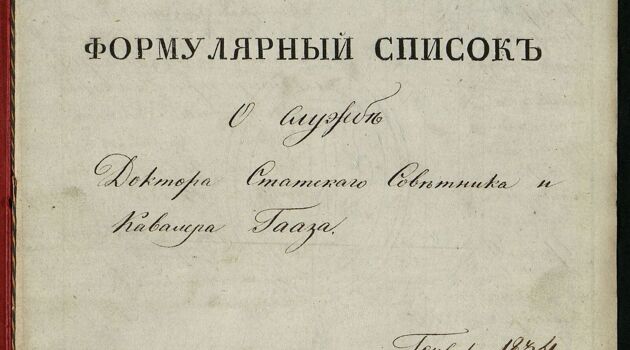 ФОРМУЛЯРНЫЙ СПИСОКЪ
О службѣ
Доктора Статскаго Совѣтника и
Кавалера Гааза.